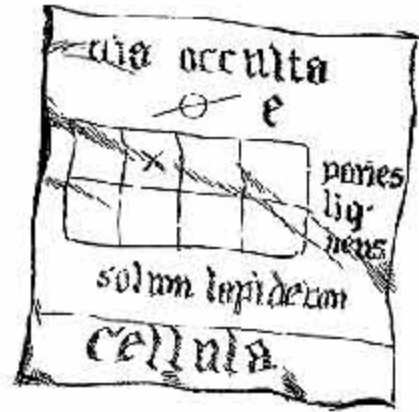 via occulta
e
paries
lig-
neus
solum lapideum
cellula